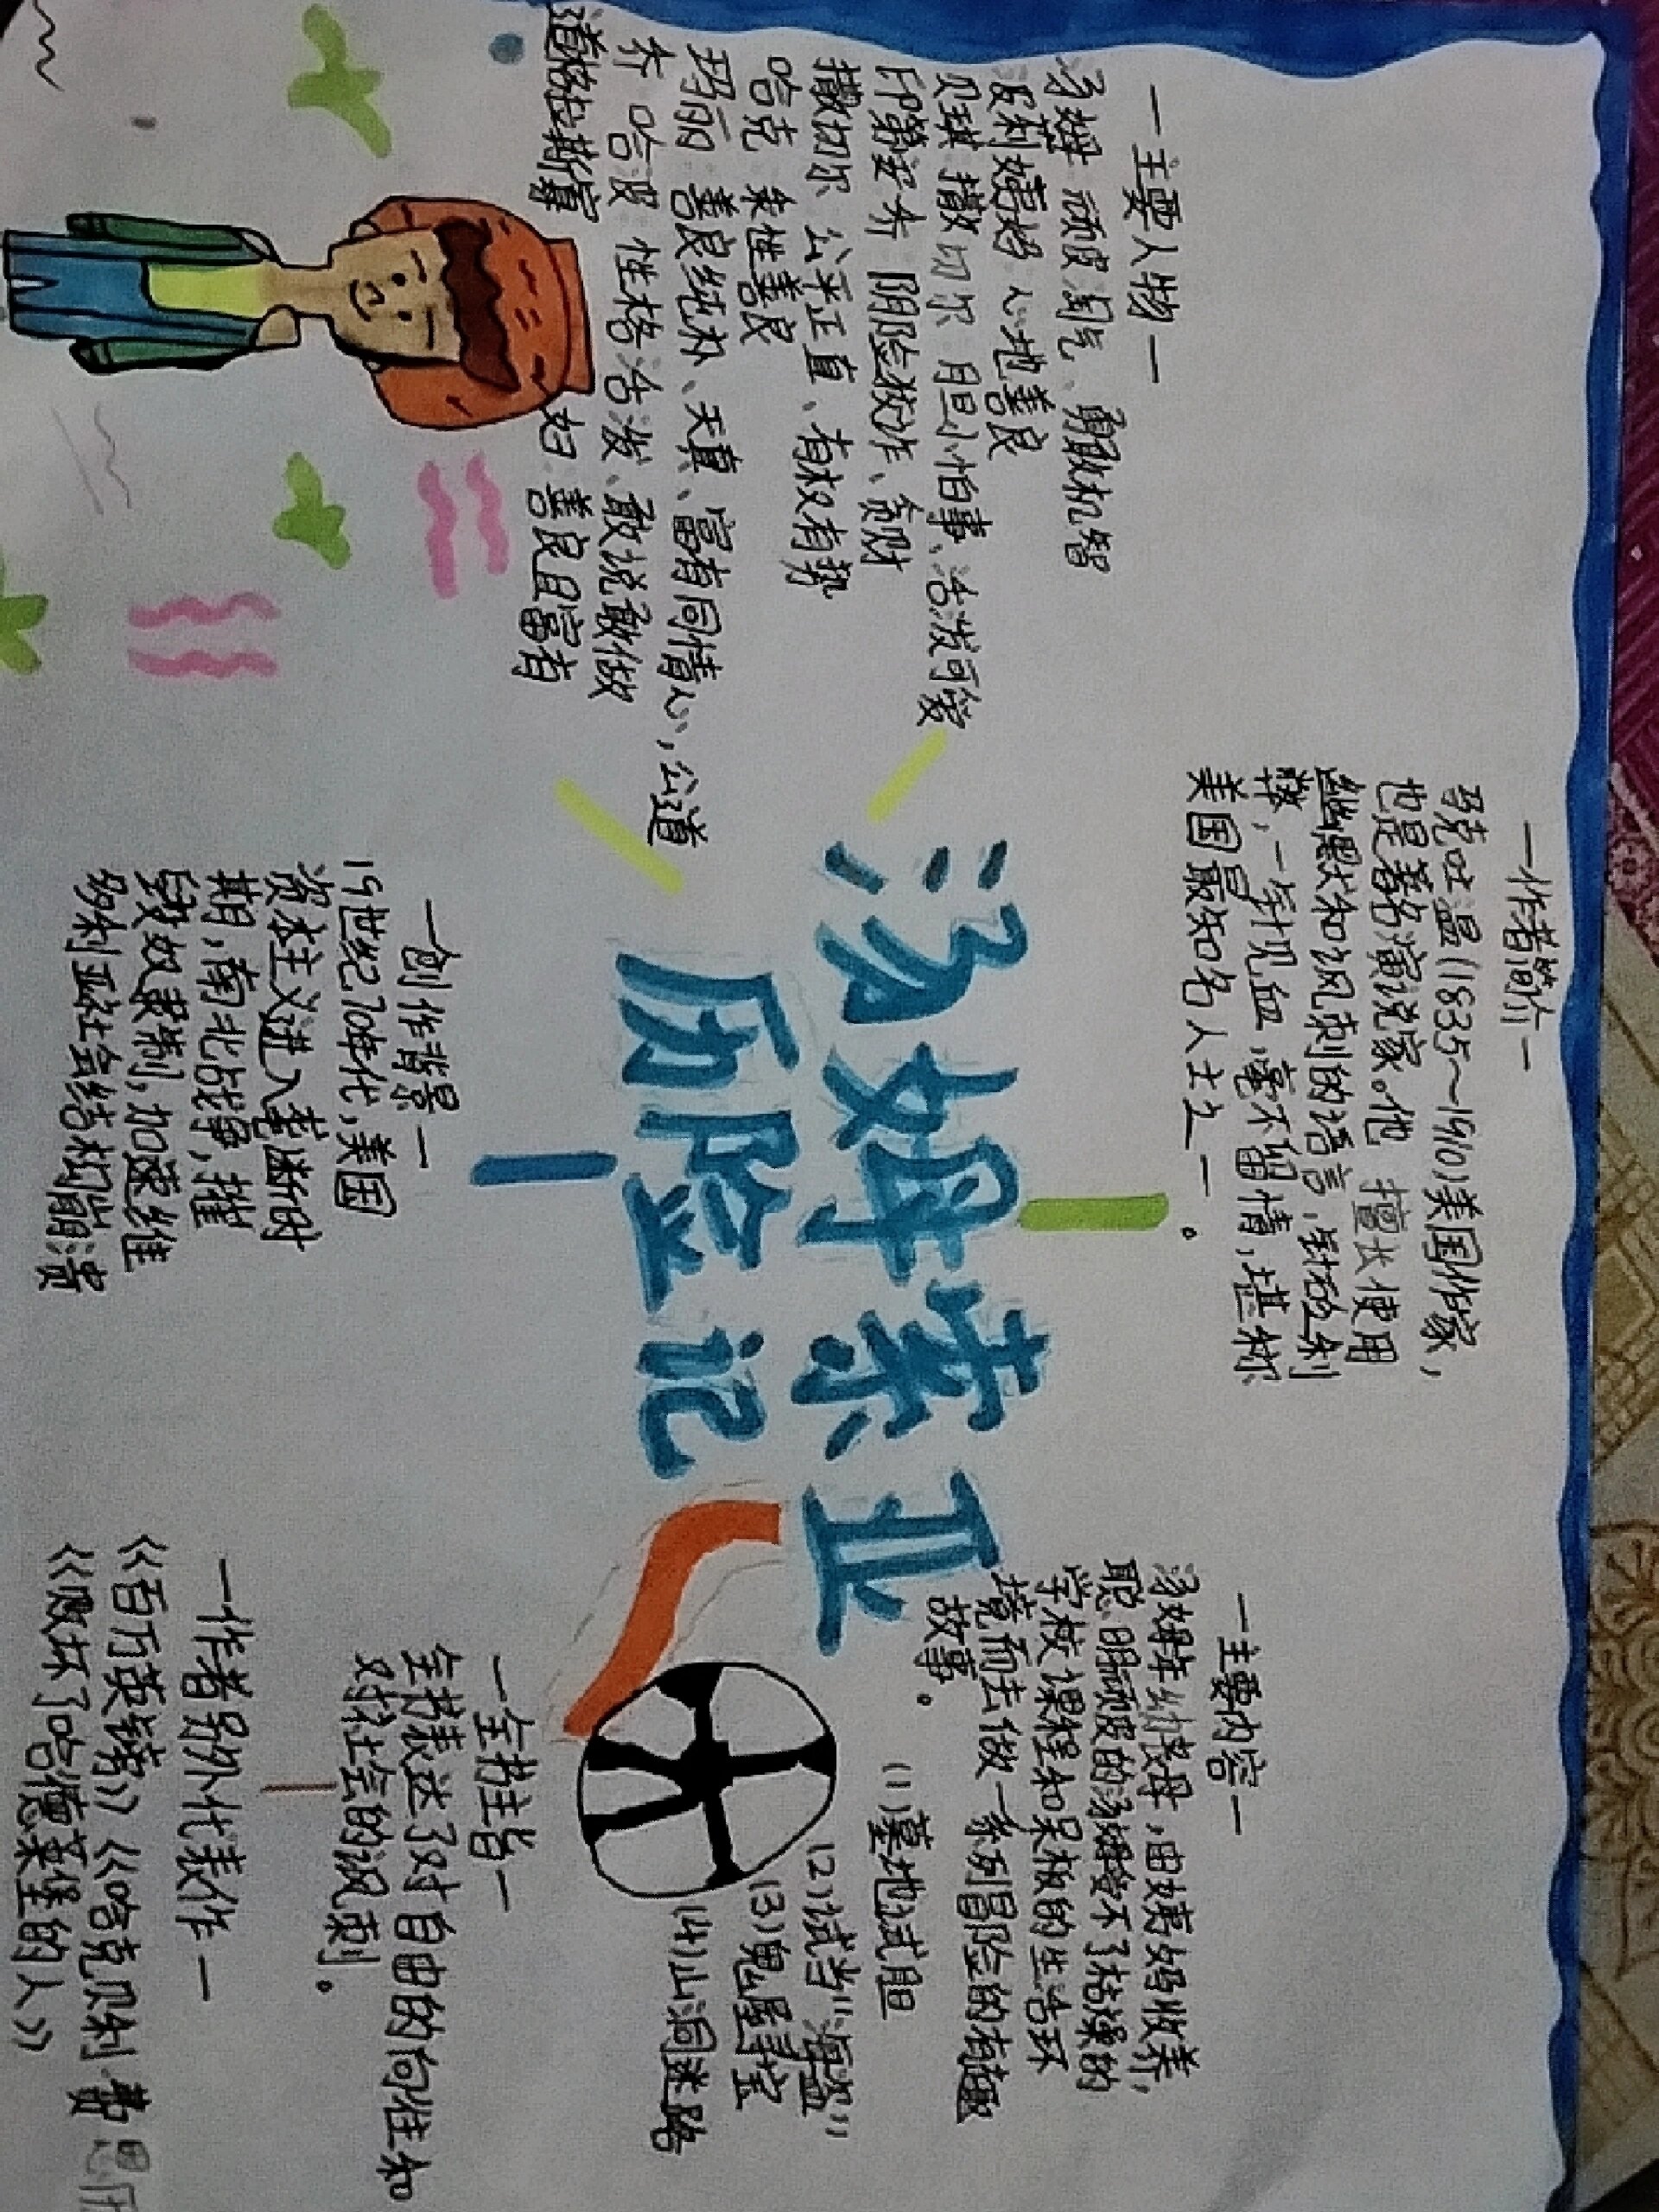 一主要人物一
汤姆 顽皮淘气、勇敢机智
波莉姨妈 心地善良
贝琪 撒切尔 胆小怕事、活泼可爱
印第安乔 阴险狡诈、贪财
撒切尔 公平正直、有权有势
哈克 生性善良
玛丽 善良纯朴、天真、富有同情心,公道
乔 哈波 性格活泼、敢说敢做
道格拉斯寡妇 善良且富有
一作者简介一
马克吐温(1835~1910)美国作家,
也是著名演说家。他 擅长使用
幽默和讽刺的语言,针砭
,一针见血,毫不留情,堪称
美国最知名人士之一。
汤姆索亚
历险记
一主要内容一
汤姆年幼丧母,由姨妈收养,
聪明顽皮的汤姆受不了枯燥的
学校课程和呆板的生活环
境而去做一系列冒险的有趣
故事。
(1)墓地试胆
(2)试当“海盗”
(3)鬼屋寻宝
(4)山洞迷路
一创作背景一
19世纪70年代,美国
资本主义进入垄断时
期,南北战争,摧
毁奴隶制,加速维
多利亚社会结构崩溃
一全书主旨一
全书表达了对自由的向往和
对社会的讽刺。
一作者另外代表作一
《百万英镑》《哈克贝利 费
《败坏了哈德莱堡的人》